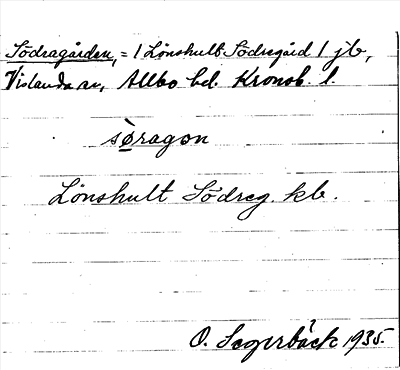 Södragården, = / Lönshult Södregård / jb,
Vislanda sn, Allbo hd. Kronob. l.
söragon
Lönshult Södreg. kb.
O. Lagerbäck 1935.